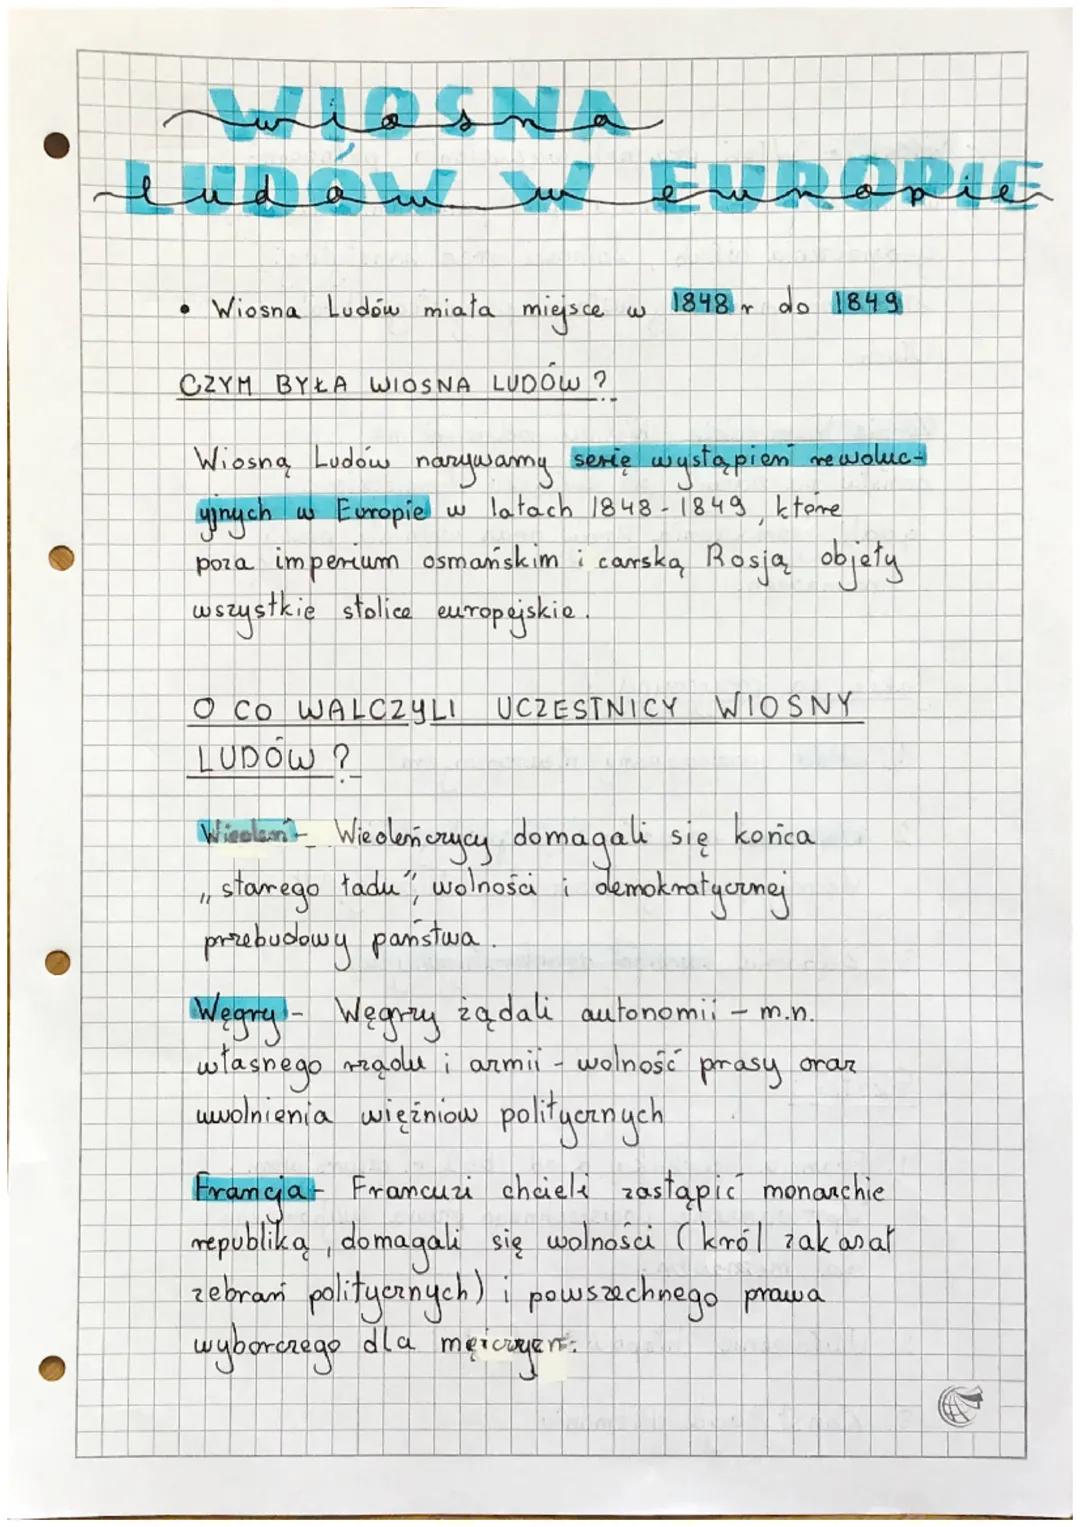 WIOSNA
wiosna
LUDÓW W EUROPIE
ludów w europie
• Wiosna Ludów miała miejsce w 1848 r do 1849
CZYM BYŁA WIOSNA LUDÓW ?
Wiosną Ludów nazywamy serię wystąpień rewoluc-
yjnych w Europie w latach 1848-1849, które
poza imperium osmańskim i carską Rosją objęły
wszystkie stolice europejskie.
O CO WALCZYLI UCZESTNICY WIOSNY
LUDÓW ?
Wiedeń - Wiedeńczycy domagali się końca
„starego ładu", wolności i demokratycznej
przebudowy państwa.
Węgry - Węgrzy żądali autonomii - m.n.
własnego rządu i armii - wolność prasy oraz
uwolnienia więźniow politycznych
Francja - Francuzi chcieli zastąpić monarchie
republiką, domagali się wolności (król zakazał
zebrań politycznych) i powszechnego prawa
wyborczego dla mężczyzn.